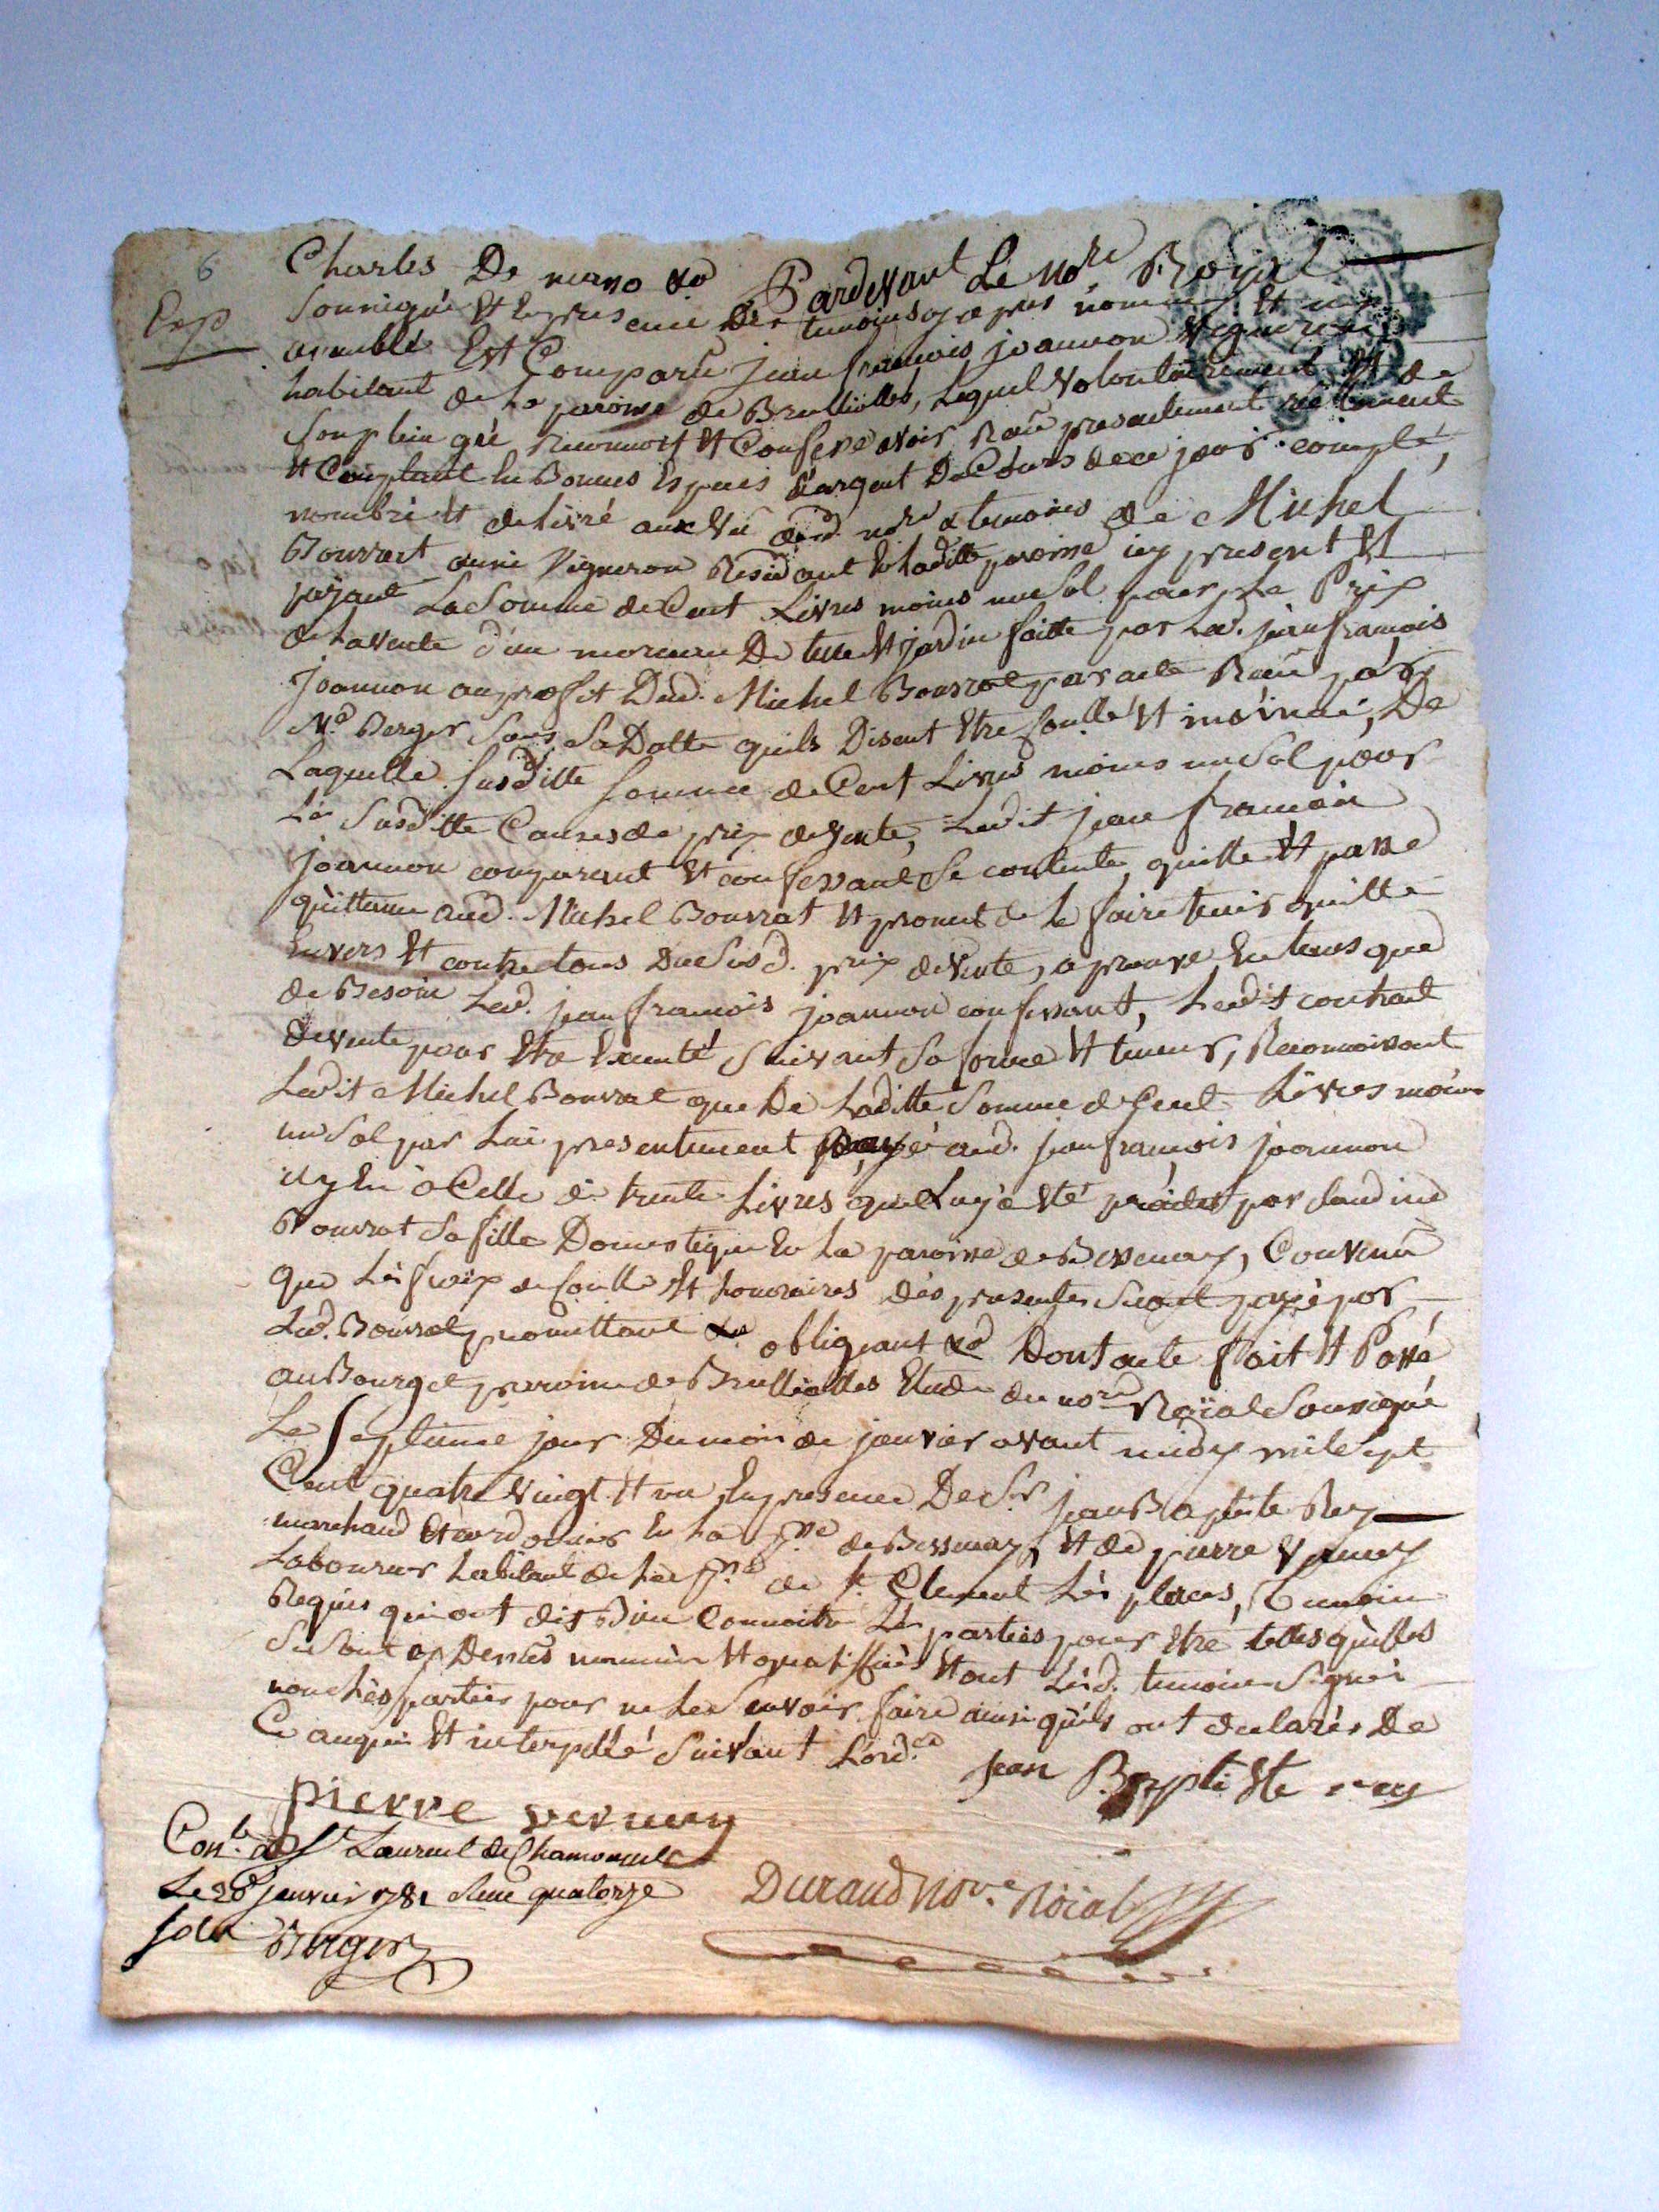 6
Exp
Charles De Pardevant Le nore Royal
Soussigné Et En presence des temoins cy apres nommes Et
assemblé Est Comparû jean francois joannon vigneron
habitant de la paroisse de Brullioles, Lequel volontairement Et de
Son plein gré Reconnoit Et Confesse avoir Recû presentement réellement
Et Comptant En Bonnes Especes d'argent De Cours de ce jour compté,
nombré Et delivré aux vû dud. nore & temoins de Michel
Bourrat aussi Vigneron Residant En laditte paroisse icy present Et
payant La Somme de Cent Livres moins un Sol pour Le Prix
de La vente d'un morceau De terre Et jardin faitte par Led. jean francois
joannon au profit Dud. Michel Bourrat par acte Recû par
Me. Berger Sous Sa Datte quils Disent Etre Conllé Et insinué, De
Laquelle Susditte Somme de Cent Livres moins un Sol pour
Lès Susditte Causes de prix de vente, Ledit jean francois
joannon comparant Et confessant Se contente, quitte Et passe
quittance aud. Michel Bourrat Et promet de le faire tenir quitte
Envers Et contre tous Du Susd. prix de vente, aprouve En tems que
de Besoin Led. jean francois joannon confessant, Ledit contrat
de vente pour Etre Executé Suivant Sa forme Et teneur, Reconnoissant
Ledit Michel Bourrat que De Laditte Somme de Cent Livres moins
un Sol par Lui presentement payé aud. jean francois joannon
il y En à Celle de trente Livres que Luy à Eté par Claudine
Bourrat Sa fille Domestique En La paroisse de Bessenay, Convenû
que Lès fraix de Conlle Et honoraires dès presentes Seront payé par
Led. Bourrat promettant obligeant &d Dont acte fait Et Passé
au Bourg et paroisse de Brullioles Etude du nore Roïal Soussigné
Le Septieme jour Du mois de janvier avant midy mil Sept
Cent quatre vingt Et un, En presence De Sr jean Baptiste Rey
marchand Et cordonnier En La psse de Bessenay, Et de pierre verney
Laboureur habitant de La psse de St Clement Lès places, temoins
Requis qui ont dit Bien Connoitre Lès parties pour Etre telles qu'elles
Se Sont cy Dessus nommées Et qualiffiées Et ont Lesd. temoins Signé
non Lès parties pour ne Le Savoir faire ainsi qu'ils ont declarés De
Ce enquis Et interpellé Suivant L'ordce
jean Baptiste rey
pierre verney
Conlé à St Laurent de Chamousset
Le 20 janvier 1781 Reçu quatorze
Sols Berger
Durand Nore Roïal